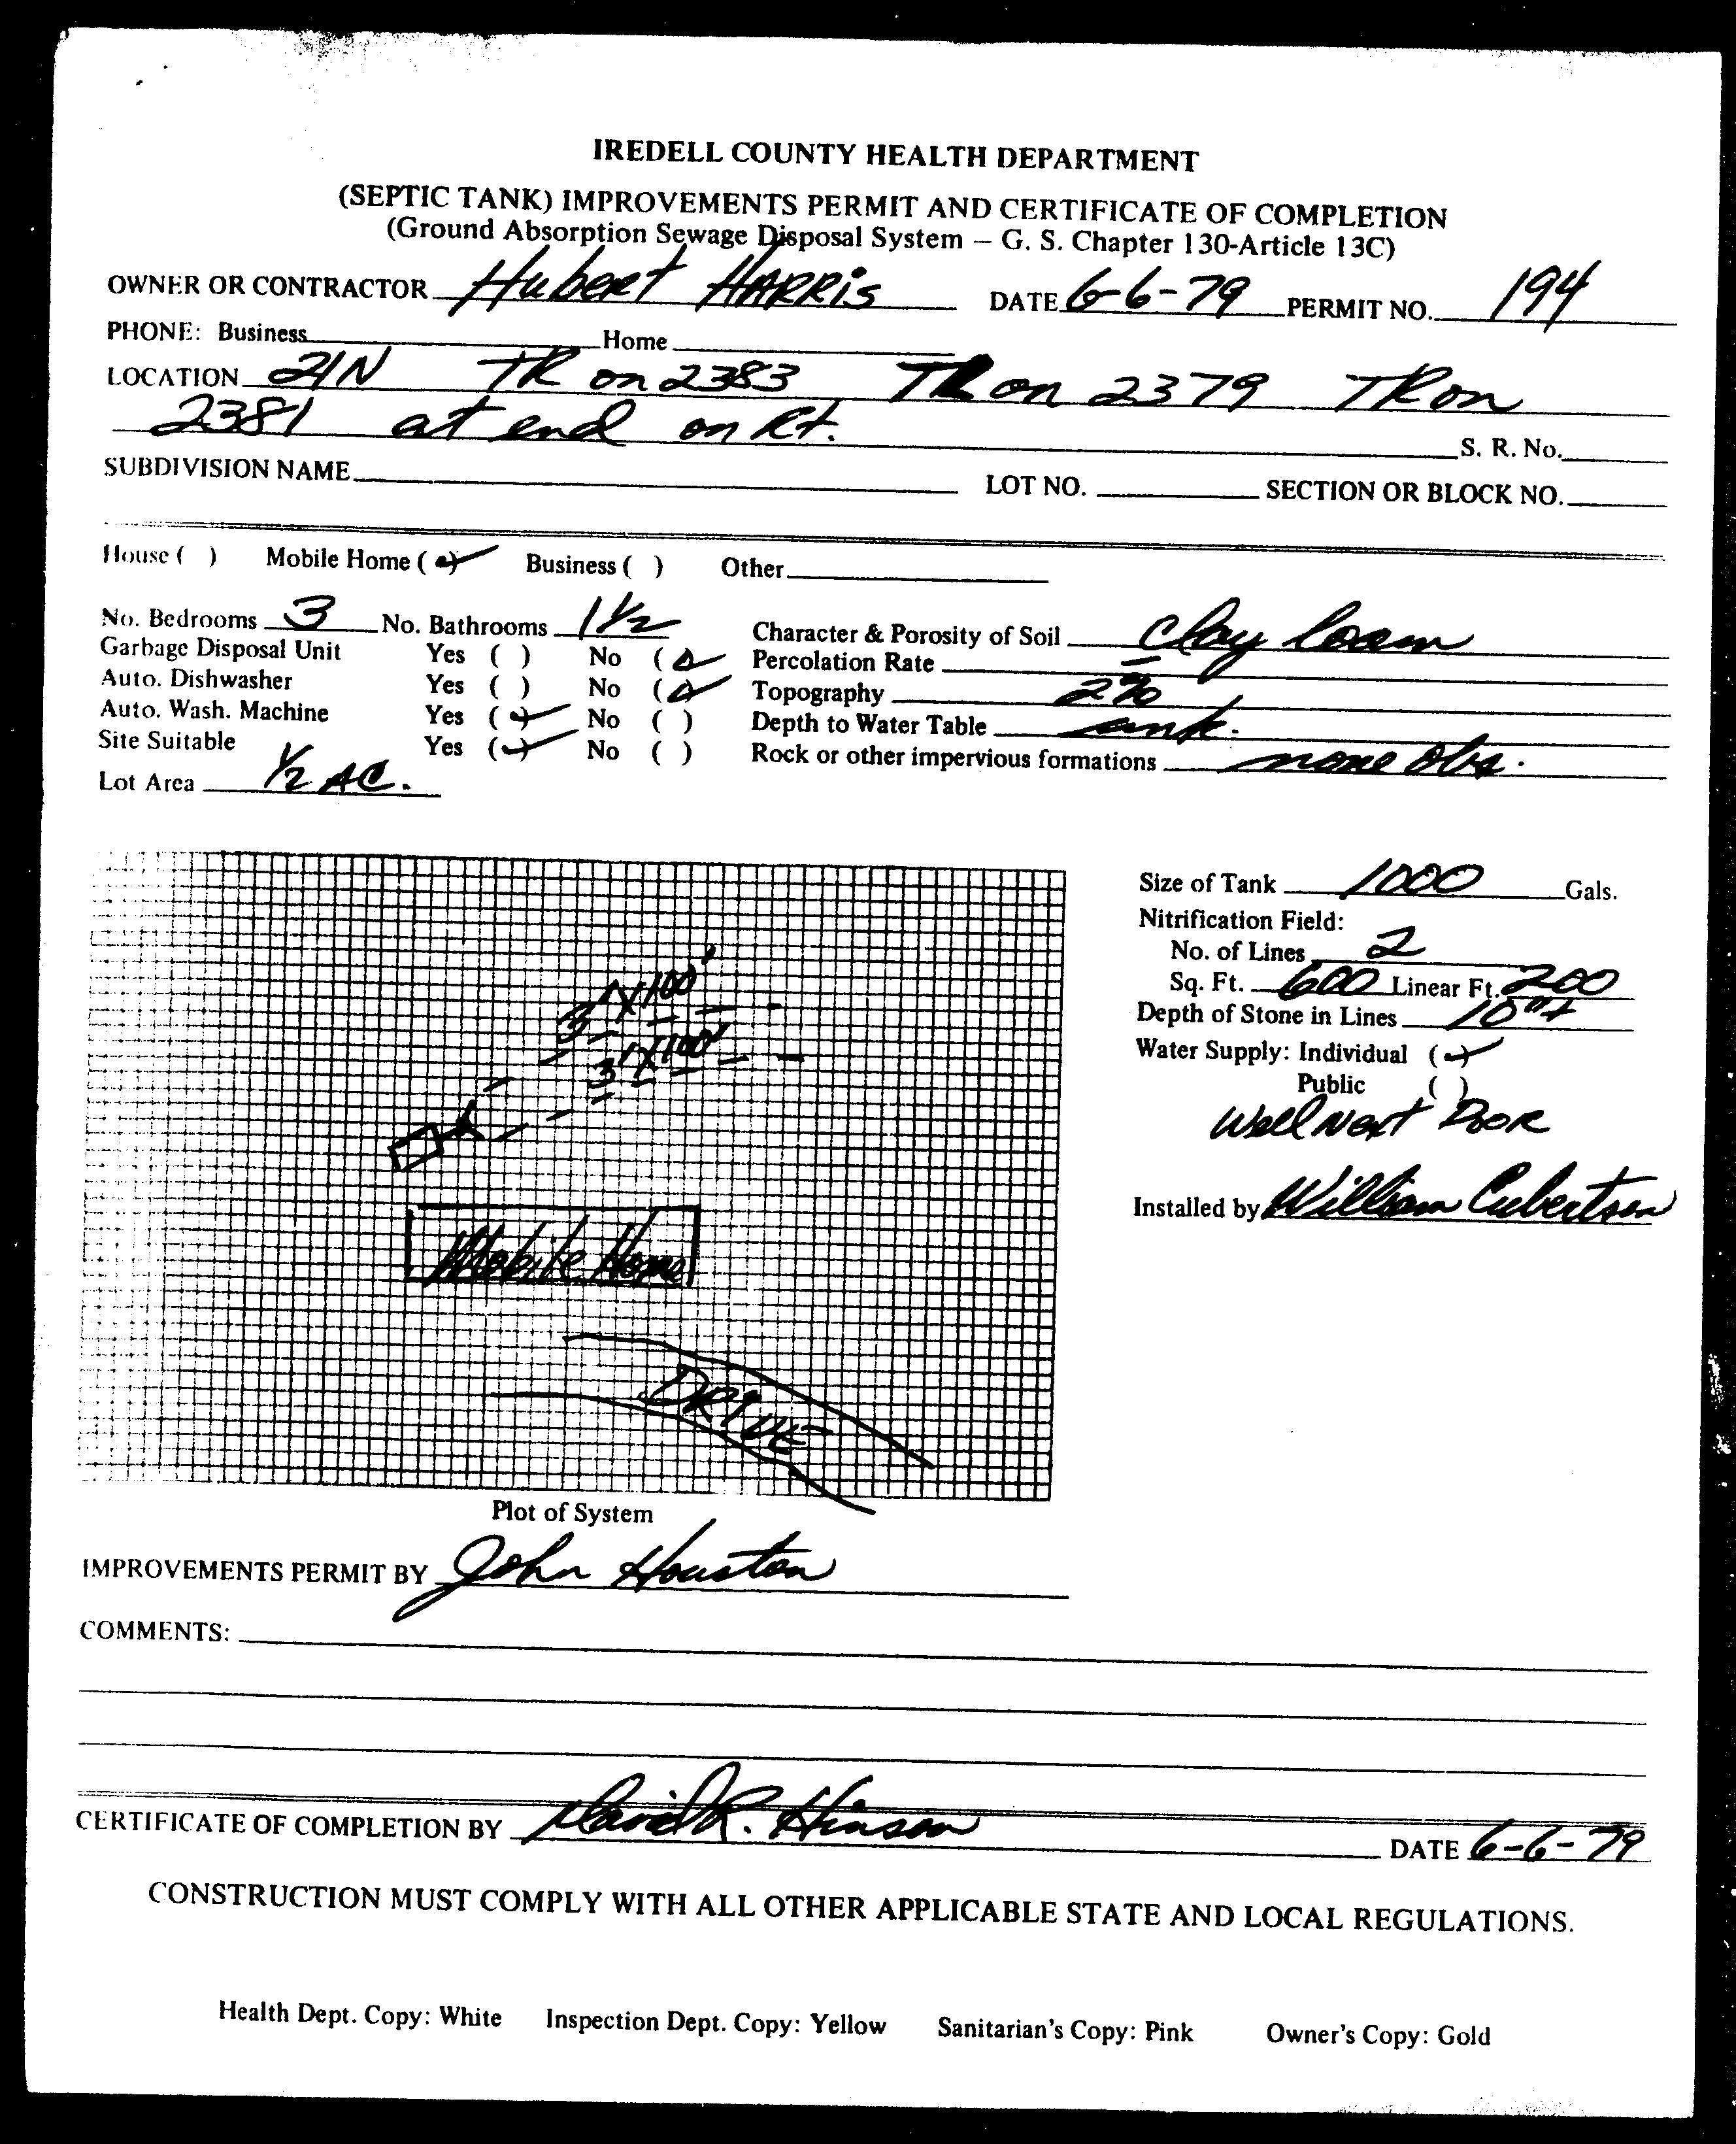 IREDELL COUNTY HEALTH DEPARTMENT
(SEPTIC TANK) IMPROVEMENTS PERMIT AND CERTIFICATE OF COMPLETION
(Ground Absorption Sewage Disposal System – G. S. Chapter 130-Article 13C)
OWNER OR CONTRACTOR Hubert HARRIS DATE 6-6-79 PERMIT NO. 194
PHONE: Business Home
LOCATION 21N TR on 2383 TR on 2379 TR on
2381 at end on Rt. S. R. No.
SUBDIVISION NAME LOT NO. SECTION OR BLOCK NO.
House ( ) Mobile Home (✓) Business ( ) Other
No. Bedrooms 3 No. Bathrooms 1 1/2 Character & Porosity of Soil Clay loam
Garbage Disposal Unit Yes ( ) No (✓) Percolation Rate –
Auto. Dishwasher Yes ( ) No (✓) Topography 2%
Auto. Wash. Machine Yes (✓) No ( ) Depth to Water Table unk.
Site Suitable Yes (✓) No ( ) Rock or other impervious formations none obs.
Lot Area 1/2 AC.
Size of Tank 1000 Gals.
Nitrification Field:
No. of Lines 2
Sq. Ft. 600 Linear Ft. 200
Depth of Stone in Lines 10"+
Water Supply: Individual (✓)
Public ( )
Well Next Door
Installed by William Culbertson
3'X100'
3'X100'
Mobile Home
DRIVE
Plot of System
IMPROVEMENTS PERMIT BY John Houston
COMMENTS:
CERTIFICATE OF COMPLETION BY David R. Hinson DATE 6-6-79
CONSTRUCTION MUST COMPLY WITH ALL OTHER APPLICABLE STATE AND LOCAL REGULATIONS.
Health Dept. Copy: White Inspection Dept. Copy: Yellow Sanitarian's Copy: Pink Owner's Copy: Gold